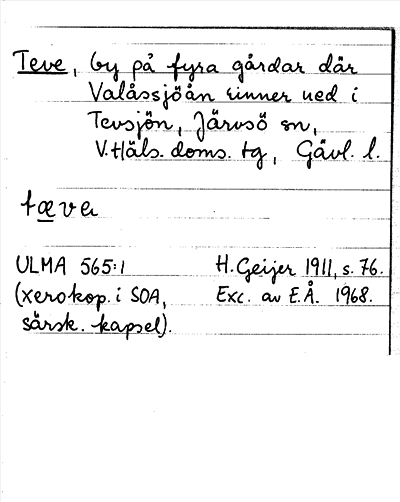 Teve, by på fyra gårdar där
Valåssjöån rinner ned i
Tevsjön, Järvsö sn,
V. Häls. doms. tg, Gävl. l.
tæva
ULMA 565:1 H. Geijer 1911, s. 76.
(xerokop. i SOA, Exc. av E.Å. 1968.
särsk. kapsel).